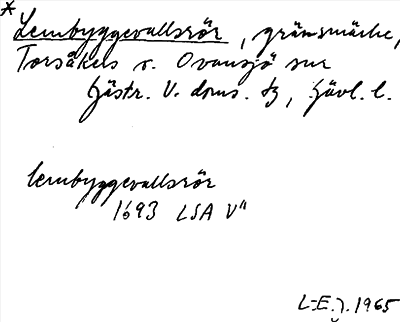 *
Lembyggevallsrör, gränsmärke,
Torsåkers o. Ovansjö snr
Gästr. V. doms. tg, Gävl. l.
lembyggevallsrör
1693 LSA V"
L-E. J. 1965